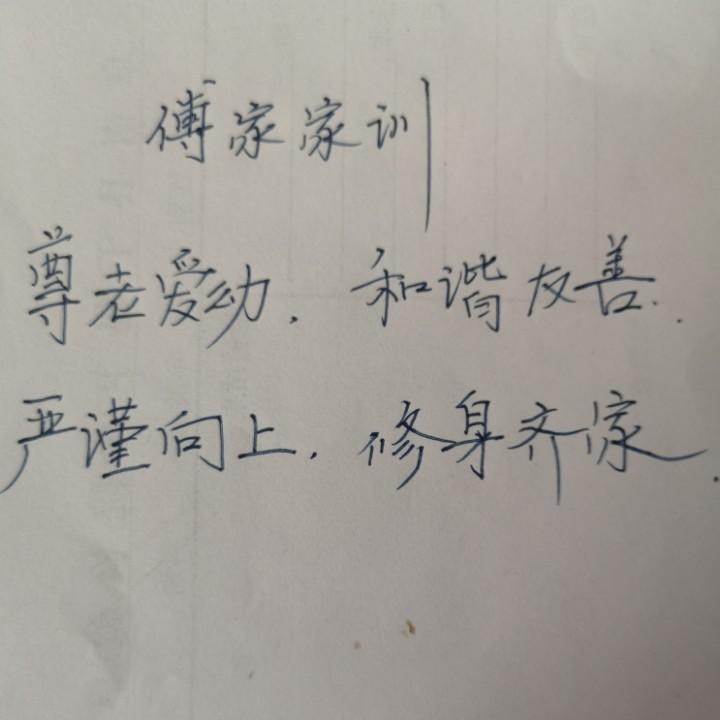 傅家家训
尊老爱幼，和谐友善．
严谨向上，修身齐家．